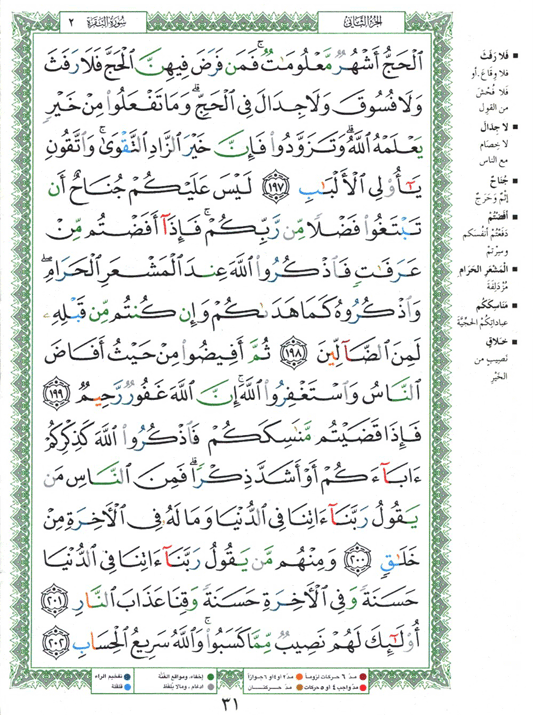 الجزء الثاني
سورة البقرة ٢
ٱلْحَجُّ أَشْهُرٌ مَّعْلُومَٰتٌ ۚ فَمَن فَرَضَ فِيهِنَّ ٱلْحَجَّ فَلَا رَفَثَ
وَلَا فُسُوقَ وَلَا جِدَالَ فِى ٱلْحَجِّ ۗ وَمَا تَفْعَلُوا۟ مِنْ خَيْرٍ
يَعْلَمْهُ ٱللَّهُ ۗ وَتَزَوَّدُوا۟ فَإِنَّ خَيْرَ ٱلزَّادِ ٱلتَّقْوَىٰ ۚ وَٱتَّقُونِ
يَٰٓأُو۟لِى ٱلْأَلْبَٰبِ ١٩٧ لَيْسَ عَلَيْكُمْ جُنَاحٌ أَن
تَبْتَغُوا۟ فَضْلًا مِّن رَّبِّكُمْ ۚ فَإِذَآ أَفَضْتُم مِّنْ
عَرَفَٰتٍ فَٱذْكُرُوا۟ ٱللَّهَ عِندَ ٱلْمَشْعَرِ ٱلْحَرَامِ ۖ
وَٱذْكُرُوهُ كَمَا هَدَىٰكُمْ وَإِن كُنتُم مِّن قَبْلِهِۦ
لَمِنَ ٱلضَّآلِّينَ ١٩٨ ثُمَّ أَفِيضُوا۟ مِنْ حَيْثُ أَفَاضَ
ٱلنَّاسُ وَٱسْتَغْفِرُوا۟ ٱللَّهَ ۚ إِنَّ ٱللَّهَ غَفُورٌ رَّحِيمٌ ١٩٩
فَإِذَا قَضَيْتُم مَّنَٰسِكَكُمْ فَٱذْكُرُوا۟ ٱللَّهَ كَذِكْرِكُمْ
ءَابَآءَكُمْ أَوْ أَشَدَّ ذِكْرًا ۗ فَمِنَ ٱلنَّاسِ مَن
يَقُولُ رَبَّنَآ ءَاتِنَا فِى ٱلدُّنْيَا وَمَا لَهُۥ فِى ٱلْءَاخِرَةِ مِنْ
خَلَٰقٍ ٢٠٠ وَمِنْهُم مَّن يَقُولُ رَبَّنَآ ءَاتِنَا فِى ٱلدُّنْيَا
حَسَنَةً وَفِى ٱلْءَاخِرَةِ حَسَنَةً وَقِنَا عَذَابَ ٱلنَّارِ ٢٠١
أُو۟لَٰٓئِكَ لَهُمْ نَصِيبٌ مِّمَّا كَسَبُوا۟ ۚ وَٱللَّهُ سَرِيعُ ٱلْحِسَابِ ٢٠٢
■ فَلا رَفَثَ
فلا وِقاعَ. أو
فلا فُحْشَ
من القول
■ لا جِدالَ
لا خِصَام
مع الناس
■ جُناحٌ
إثْمٌ وَحَرَجٌ
■ أفَضْتُمْ
دَفَعْتُمْ أنفسَكم
وسِرْتُمْ
■ الْمَشْعَرِ الحَرَامِ
مُزْدَلِفَةَ
■ مَنَاسِكَكُمْ
عباداتِكُمُ الحَجِّيَّةَ
■ خَلاقٍ
نَصِيبٍ من
الخَيْرِ
مدّ ٦ حركات لزوماً
مدّ ٢ أو ٤ أو ٦ جوازاً
إخفاء، ومواقع الغُنَّة
تفخيم الراء
مدّ واجب ٤ أو ٥ حركات
مدّ حركتــان
ادغام ، ومالا يُلفظ
قلقلة
٣١